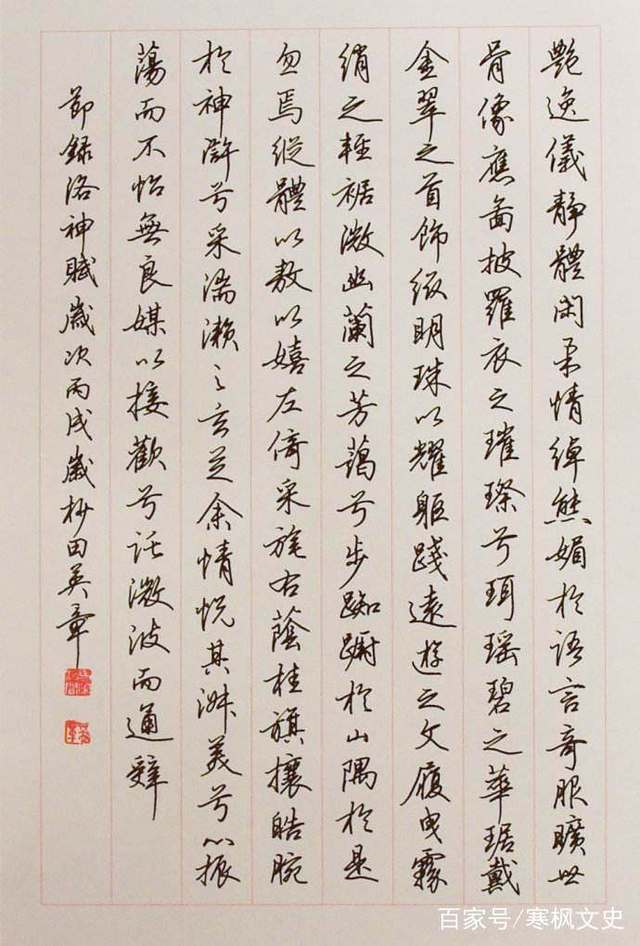 艷逸儀靜體閑柔情綽態媚於語言奇服曠世
骨像應圖披羅衣之璀璨兮珥瑤碧之華琚戴
金翠之首飾綴明珠以耀軀踐遠遊之文履曳霧
綃之輕裾微幽蘭之芳藹兮步踟躕於山隅於是
忽焉縱體以敖以嬉左倚采旄右蔭桂旗攘皓腕
於神滸兮采湍瀨之玄芝余情悅其淑美兮心振
蕩而不怡無良媒以接歡兮託微波而通辭
節錄洛神賦歲次丙戌歲杪田英章
百家号/寒枫文史